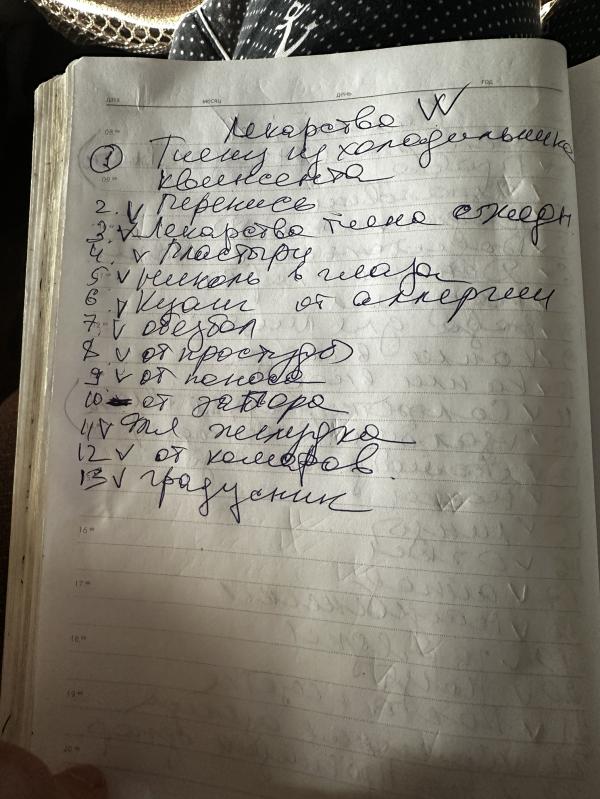 дата месяц день год
Лекарства
08 00
1 Тиену из холодильника
09 00
квинсента
2. V Перекись
3. V Лекарства тиена ежедн
4. V Пластыри
5 V в глаза
6 V от аллергии
7. V обезбол
8 V от простуды
9 V от поноса
10 от запора
11 V Для желудка
12 V от комаров
13 V градусник
16 00
17 00
18 00
19 00
20 00